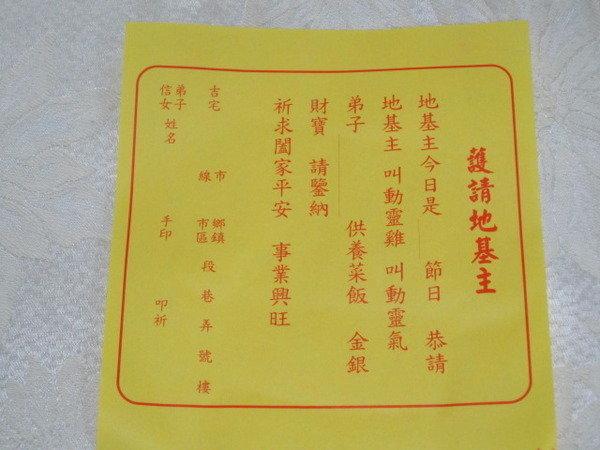 護請地基主
地基主今日是 節日 恭請
地基主 叫動靈雞 叫動靈氣
弟子 供養菜飯 金銀
財寶 請鑒納
祈求闔家平安 事業興旺
吉宅 市線 鄉鎮市區 段 巷 弄 號 樓
弟子信女 姓名 手印 叩祈